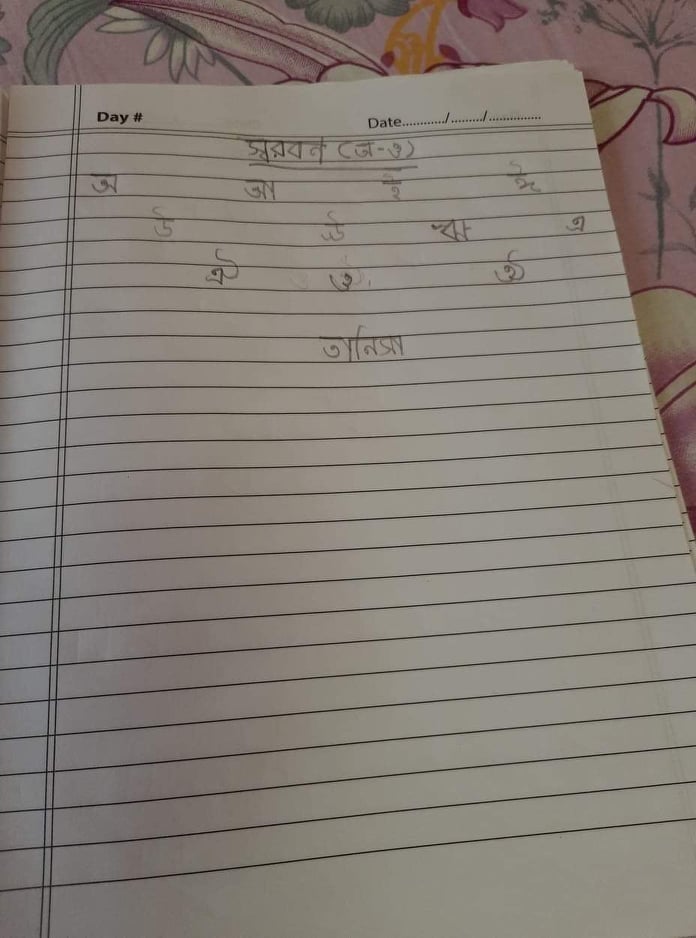 Day #
Date............/........./...............
স্বরবর্ন (অ-ও)
অ আ ই ঈ
উ ঊ ঋ এ
ঐ ও ঔ
তানিসা